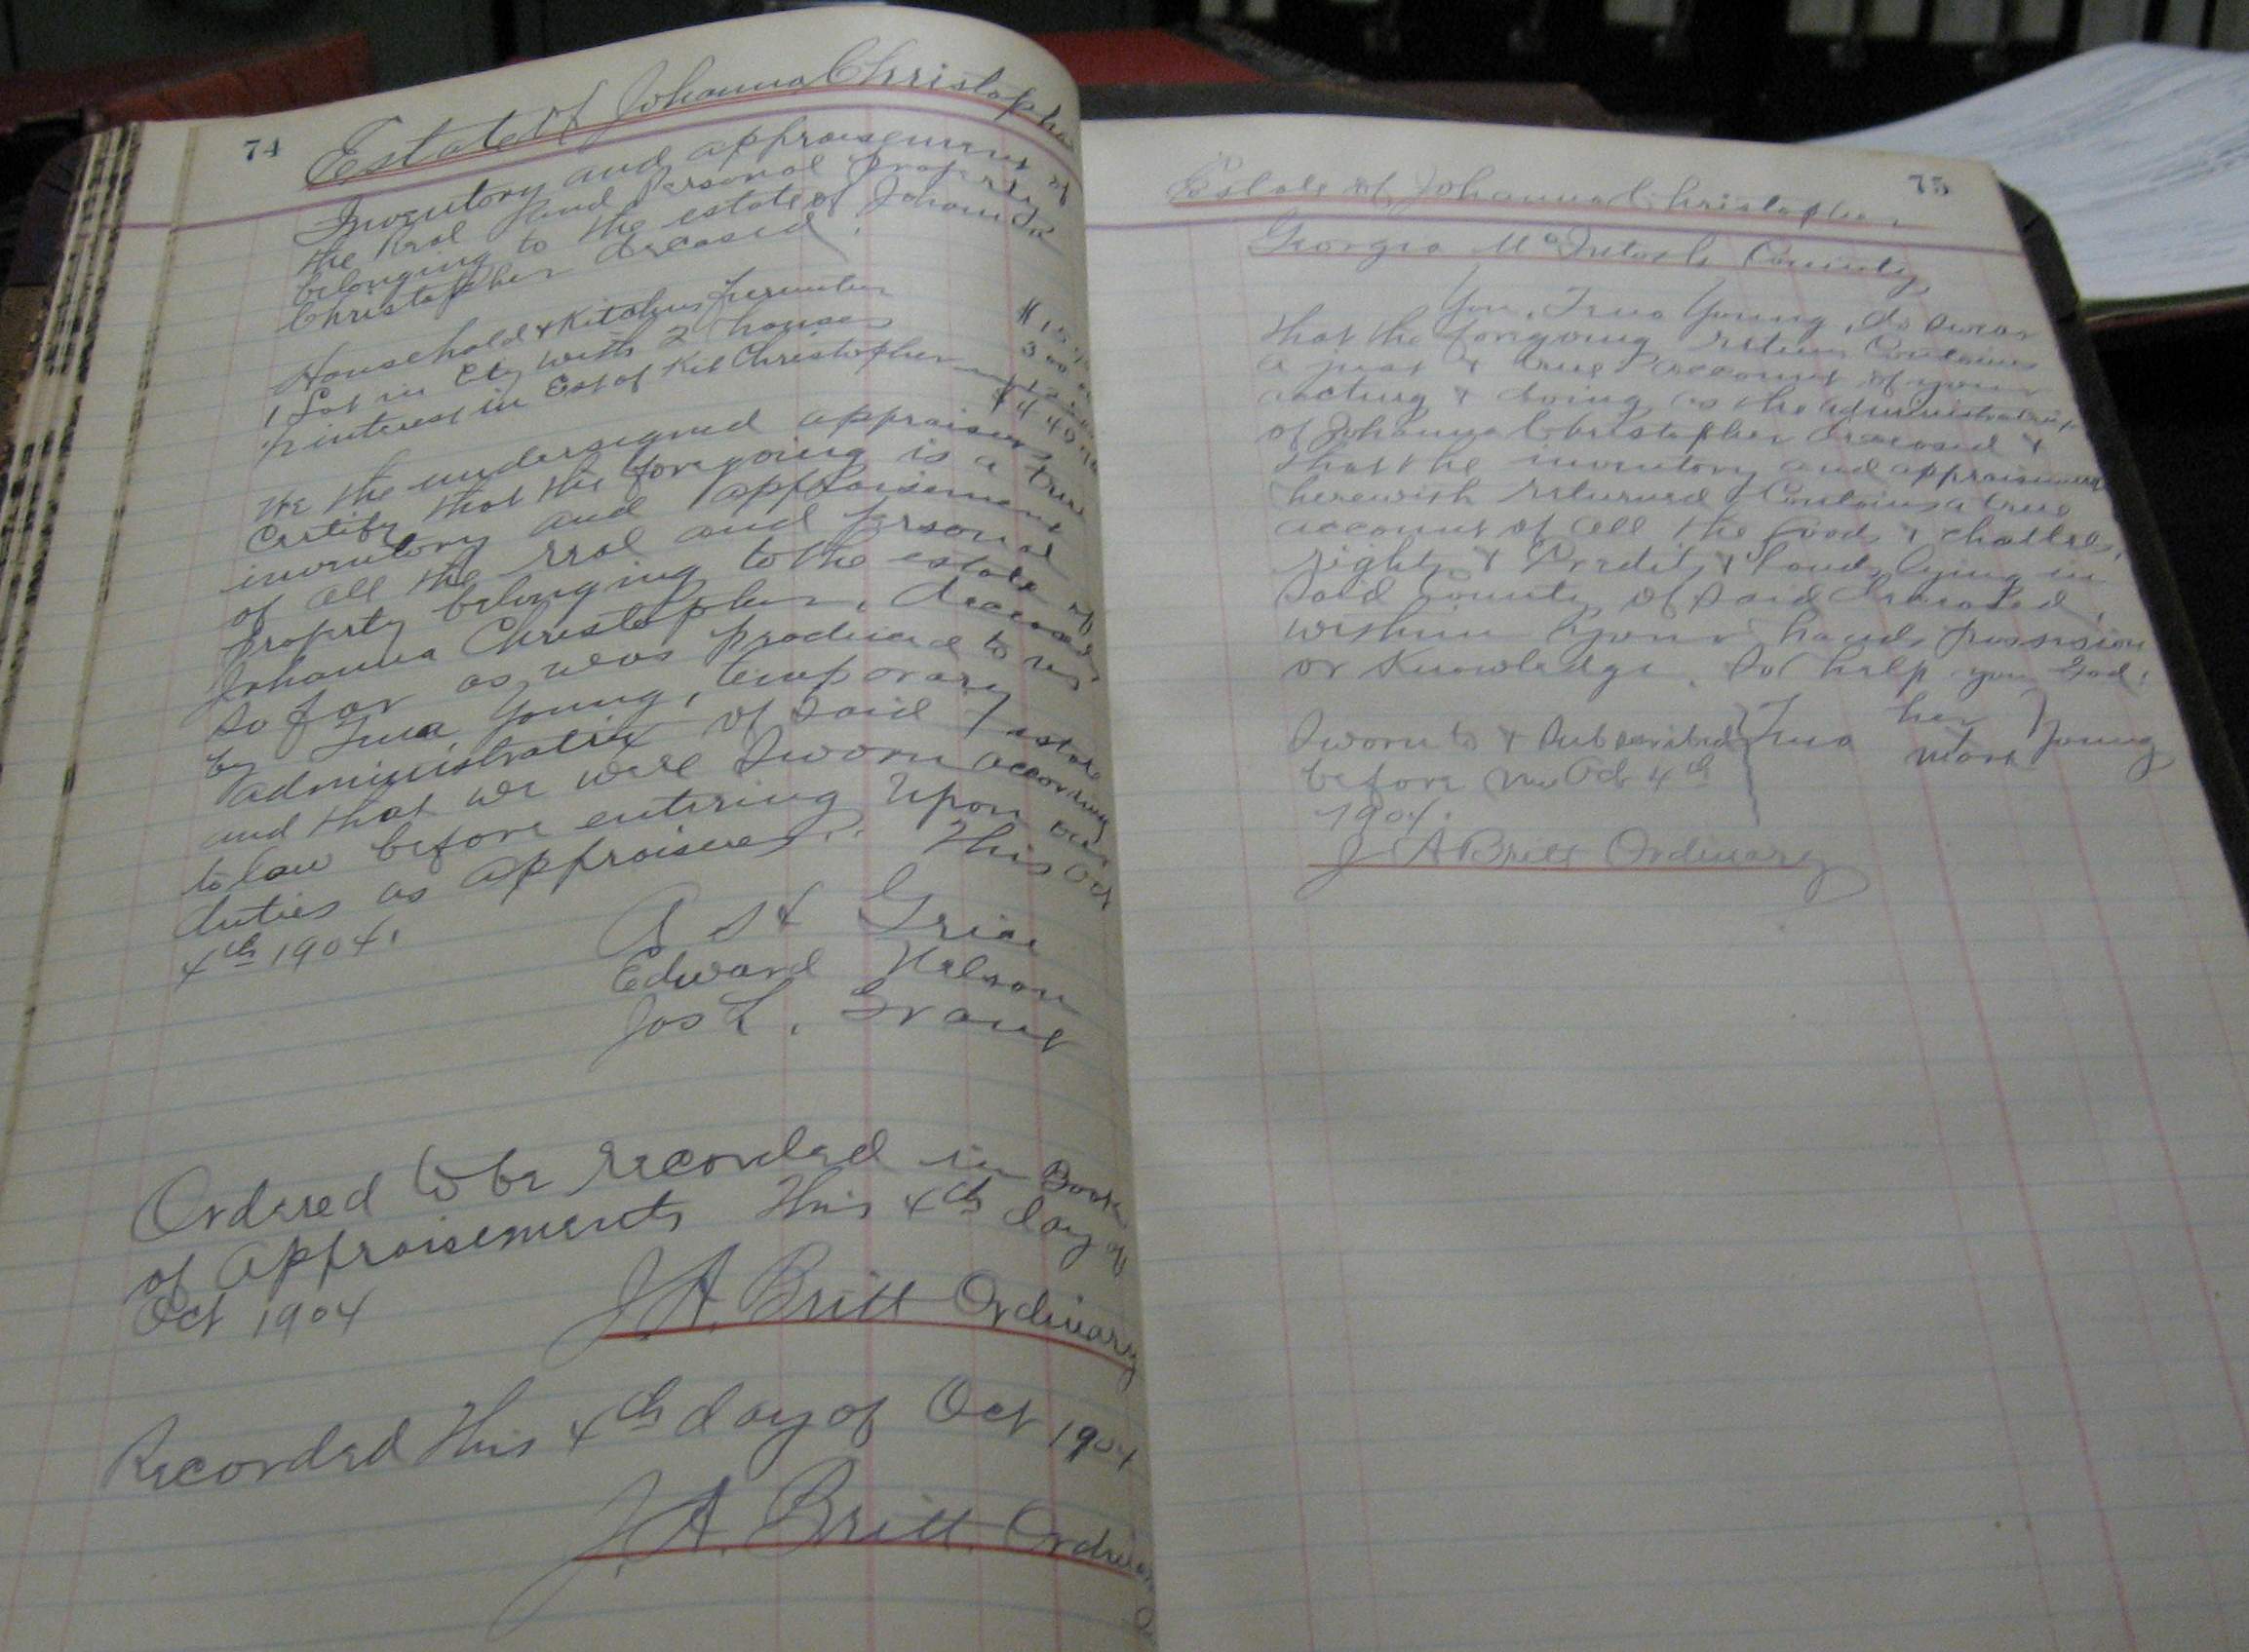 74
Estate of Johanna Christopher
Inventory and appraisement of
the Real and Personal Property
belonging to the estate of Johanna
Christopher deceased.
Household & Kitchen furniture
1 Lot in City with 2 houses
½ interest in Est of Kit Christopher
We the undersigned appraisers
Certify that the foregoing is a true
inventory and appraisement
of all the real and personal
property belonging to the estate of
Johanna Christopher, deceased
so far as was produced to us
by Tina Young, temporary
administratrix of said estate
and that we were sworn according
to law before entering upon our
duties as appraisers. This Oct
4th 1904.
Grice
Edward Nelson
Jos L. Grant
Ordered to be recorded in Book
of appraisements this 4th day of
Oct 1904
J. A. Britt Ordinary
Recorded this 4th day of Oct 1904
J. A. Britt. Ordinary
75
Estate of Johanna Christopher
Georgia McIntosh County
You, Tina Young, do swear
that the forgoing return Contains
a just & true account of your
acting & doing as the administratrix
of Johanna Christopher deceased &
that the inventory and appraisement
herewith returned Contains a true
account of all the Goods & chattles,
rights & Credits & lands lying in
said County of said deceased,
within your hands, possession
or Knowledge. So help you God.
Sworn to & subscribed
before me Oct 4th
1904.
Tina her mark Young
J A Britt Ordinary